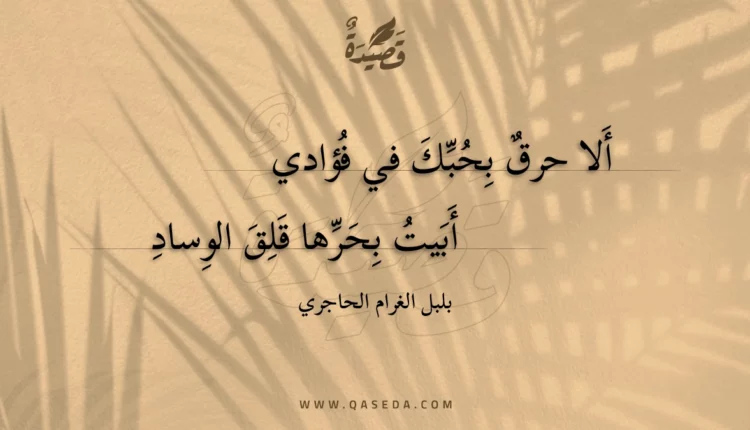 قَصِيدَةٌ
أَلا حرقٌ بِحُبِّكَ في فُؤادي
أَبَيتُ بِحَرِّها قَلِقَ الوِسادِ
بلبل الغرام الحاجري
WWW.QASEDA.COM